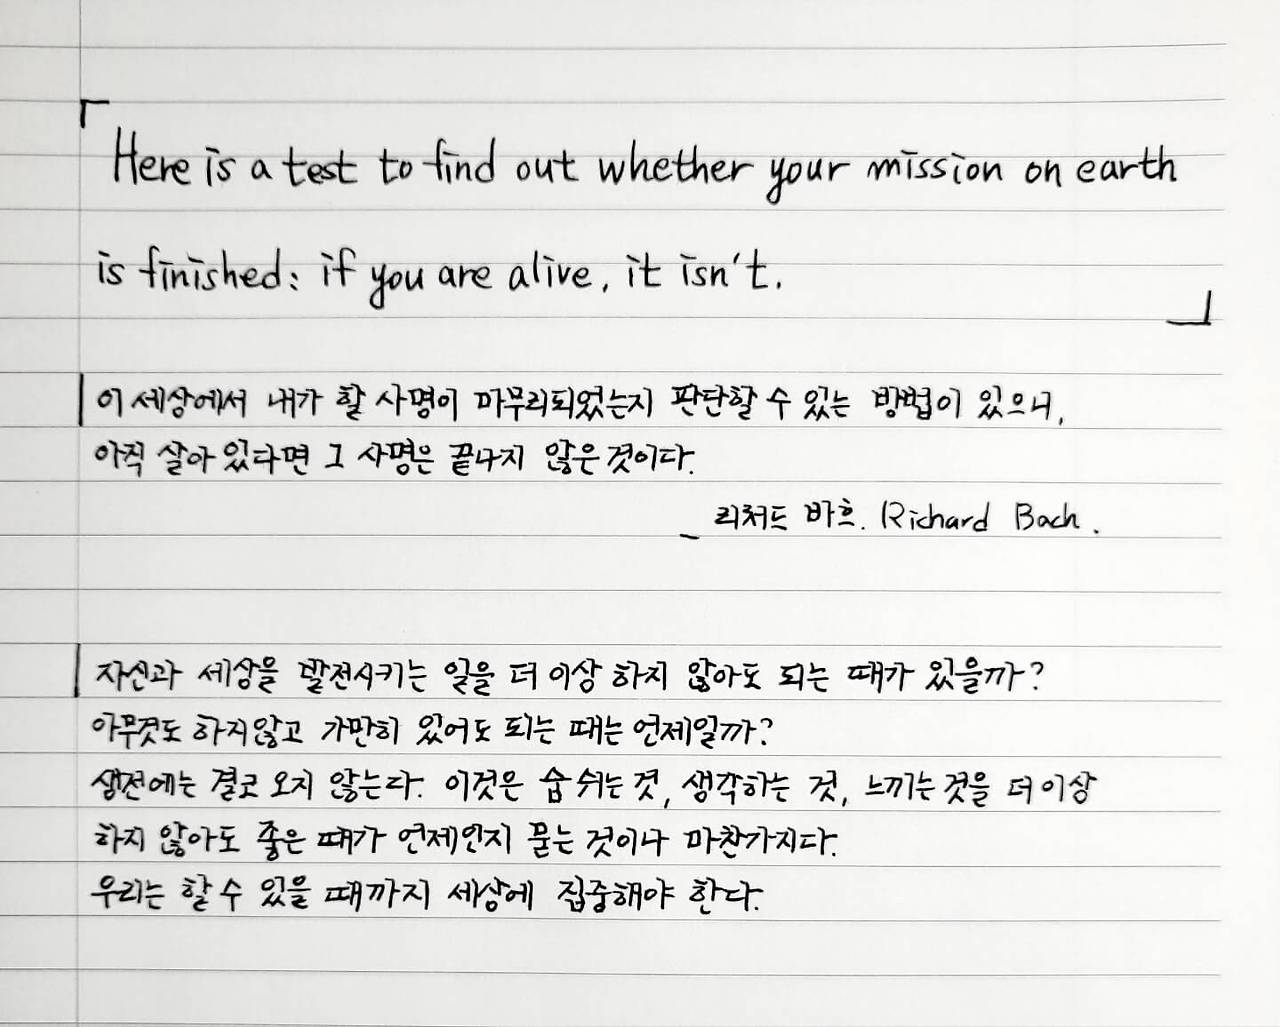 「Here is a test to find out whether your mission on earth
is finished: if you are alive, it isn't.」
이 세상에서 내가 할 사명이 마무리되었는지 판단할 수 있는 방법이 있으니,
아직 살아 있다면 그 사명은 끝나지 않은 것이다.
_ 리처드 바흐. Richard Bach.
자신과 세상을 발전시키는 일을 더 이상 하지 않아도 되는 때가 있을까?
아무것도 하지않고 가만히 있어도 되는 때는 언제일까?
생전에는 결코 오지 않는다. 이것은 숨 쉬는 것, 생각하는 것, 느끼는 것을 더 이상
하지 않아도 좋은 때가 언제인지 묻는 것이나 마찬가지다.
우리는 할 수 있을 때까지 세상에 집중해야 한다.